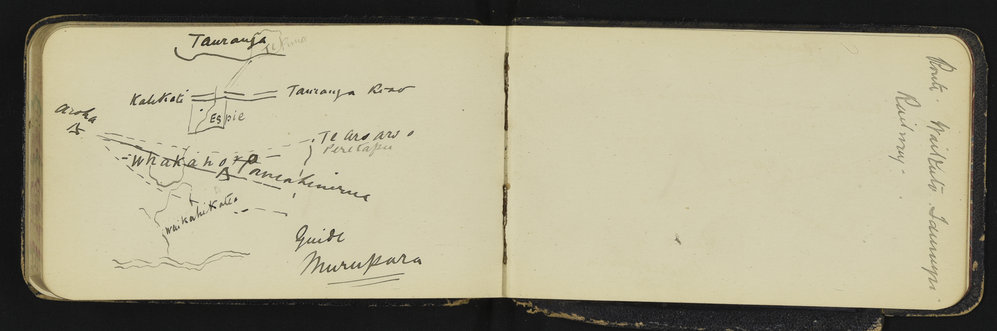 Tauranga
Te Puna
KatiKati
Tauranga Road
Espie
Aroha
Te Aroaro o
Peretapu
Whakahora
Waikahikatea
Guide
Murupara
Route. Waikato. Tauranga
Railway.